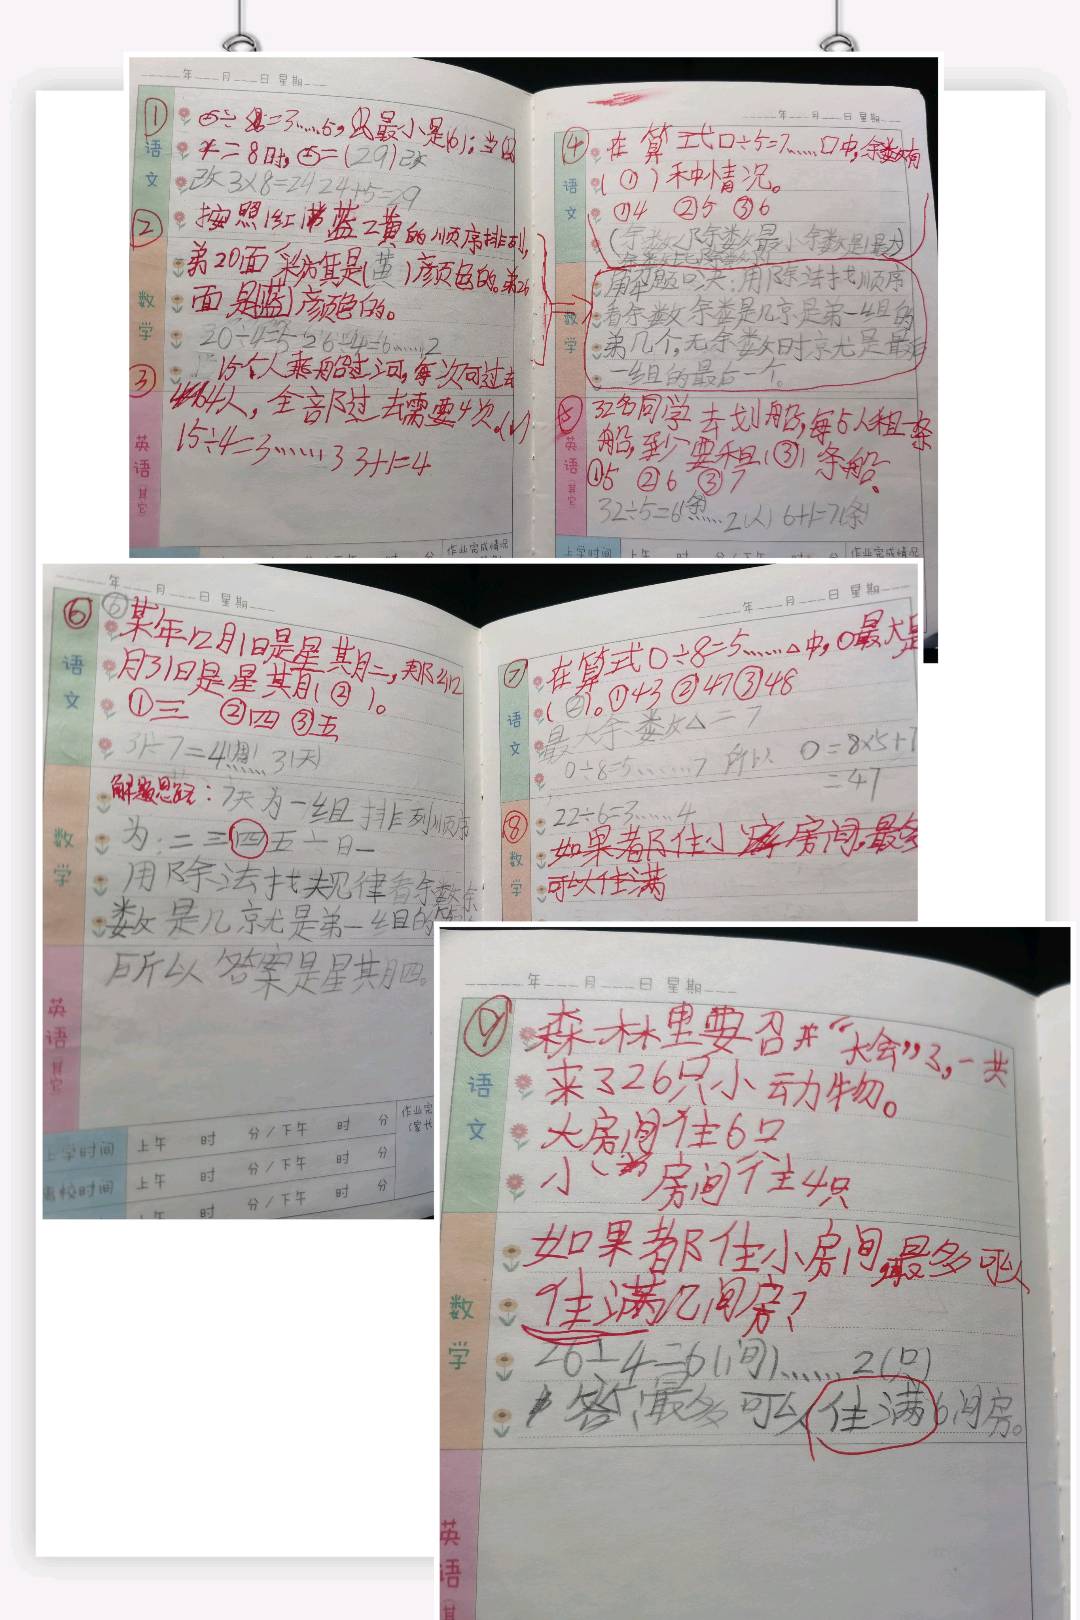 年 月 日 星期
①
÷ =3……5, 最小是(6);当
=8时, =(29)改
改 3×8=24 24+5=29
②
按照1红1 蓝2黄的顺序排列,
第20面彩旗是(黄)颜色的。第26
面是(蓝)颜色的。
20÷4=5 26÷4=6……2
③
15个人乘船过河,每次可过去
4人,全部过去需要4次。(√)
15÷4=3……3 3+1=4
语文
数学
英语(其它)
作业完成情况
年 月 日 星期
④ 在算式口÷5=7……口中,余数有
(①)种情况。
①4 ②5 ③6
(余数<除数最小余数是1最大
解题口决:用除法找顺序
看余数余数是几京是第一组的
第几个,无余数时京尤是最后
一组的最后一个。
32名同学去划船,每5人租一条
船,至少要租(③)条船。
①5 ②6 ③7
32÷5=6(条)……2(人) 6+1=7(条)
语文
数学
英语(其它)
上学时间 上午 时 分/下午 时 分 作业完成情况
年 月 日 星期
⑥ 某年12月1日是星其月二,那么12
月31日是星其月(②)。
①三 ②四 ③五
31÷7=4(周)……3(天)
解题思路:7天为一组排列顺序
为:二三四五六日一
用除法找规律看余数余
数是几京尤是第一组的第
所以答案是星其月四。
语文
数学
英语(其它)
上学时间 上午 时 分/下午 时 分
离校时间 上午 时 分/下午 时 分
上午 时 分/下午 时 分
作业完
(家长
年 月 日 星期
⑦ 在算式O÷8=5……△中,O最大是
(②)。①43 ②47 ③48
最大余数△=7
O÷8=5……7 所以 O=8×5+7
=47
22÷6=3……4
⑧ 如果都住小房间,最多
可以住满
语文
数学
年 月 日 星期
森林里要召开“大会”了,一共
来了26只小动物。
大房间住6只
小房间住4只
如果都住小房间,最多可以
住满几间房?
26÷4=6(间)……2(只)
答:最多可以住满6间房。
语文
数学
英语(其